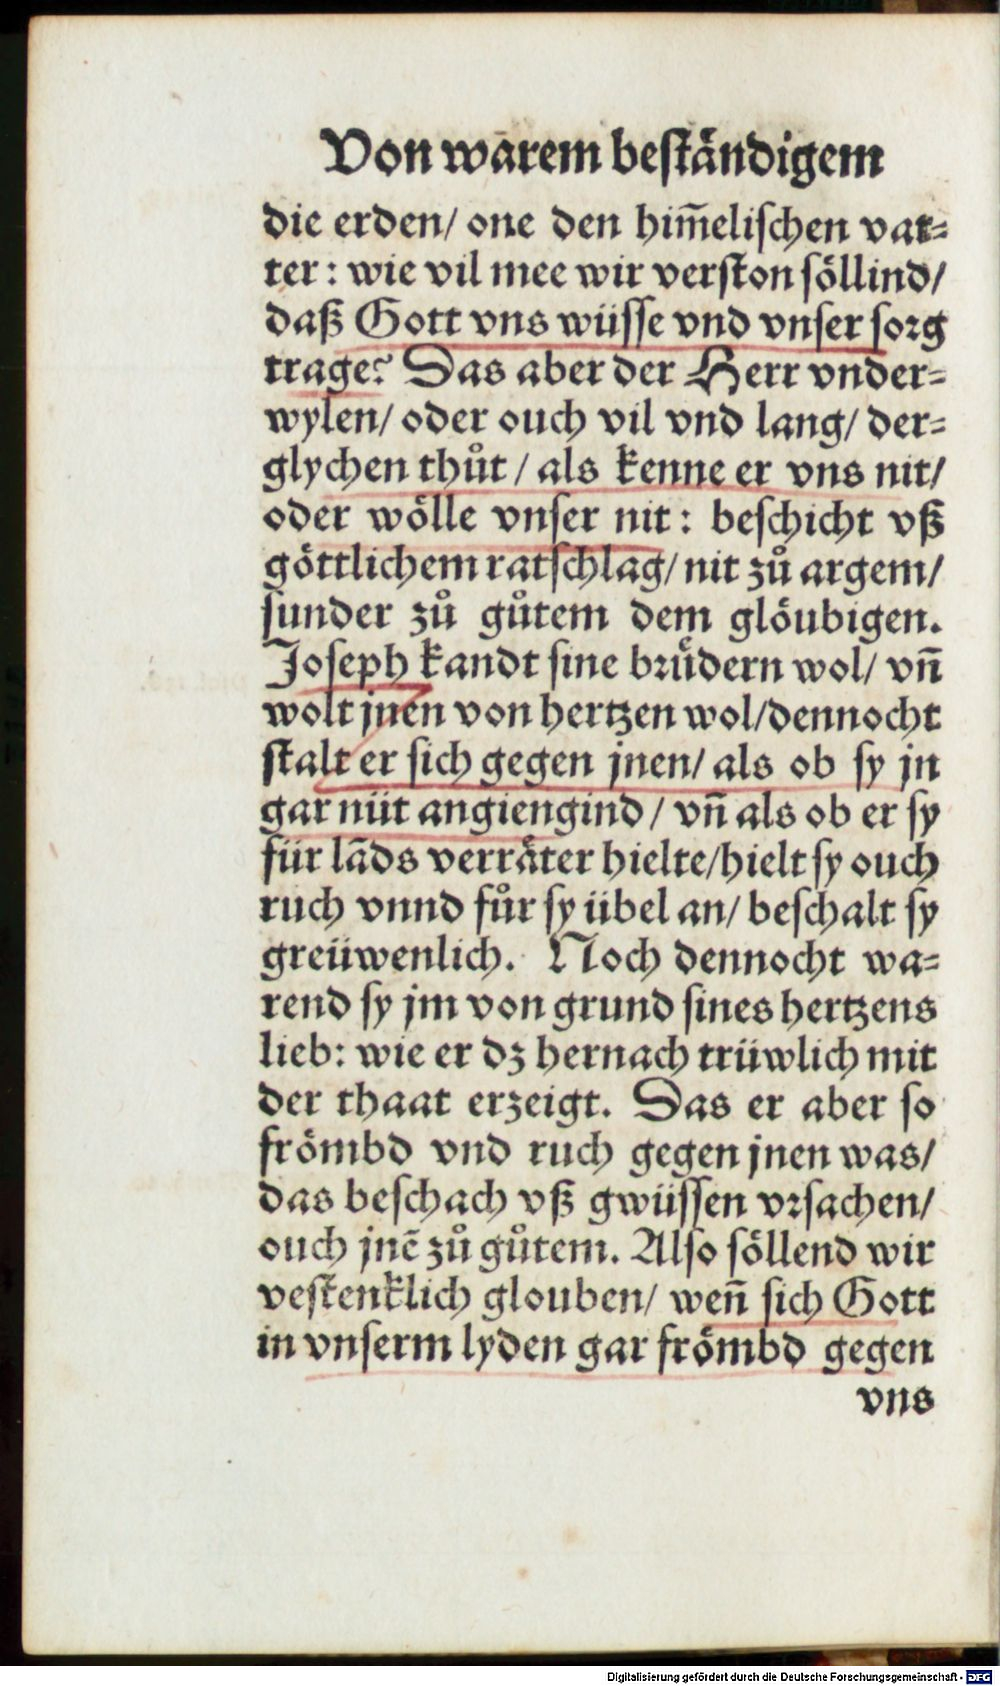 Von warem beständigem
die erden/ one den him̄elischen vat⸗
ter: wie vil mee wir verston söllind/
daß Gott vns wüsse vnd vnser sorg
trage? Das aber der Herr vnder⸗
wylen/ oder ouch vil vnd lang/ der⸗
glychen thůt / als kenne er vns nit/
oder wölle vnser nit: beschicht vß
göttlichem ratschlag/ nit zů argem/
sunder zů gůtem dem glöubigen.
Joseph kandt sine brüdern wol/ vn̄
wolt jnen von hertzen wol/dennocht
stalt er sich gegen jnen/ als ob sy jn
gar nüt angiengind / vn̄ als ob er sy
für lāds verräter hielte/hielt sy ouch
ruch vnnd fůr sy übel an/ beschalt sy
greüwenlich. Noch dennocht wa⸗
rend sy jm von grund sines hertzens
lieb: wie er dz hernach trüwlich mit
der thaat erzeigt. Das er aber so
frömbd vnd ruch gegen jnen was/
das beschach vß gwüssen vrsachen/
ouch jnē zů gůtem. Also söllend wir
vestenklich glouben/ wen̄ sich Gott
in vnserm lyden gar frömbd gegen
vns
Digitalisierung gefördert durch die Deutsche Forschungsgemeinschaft - DFG